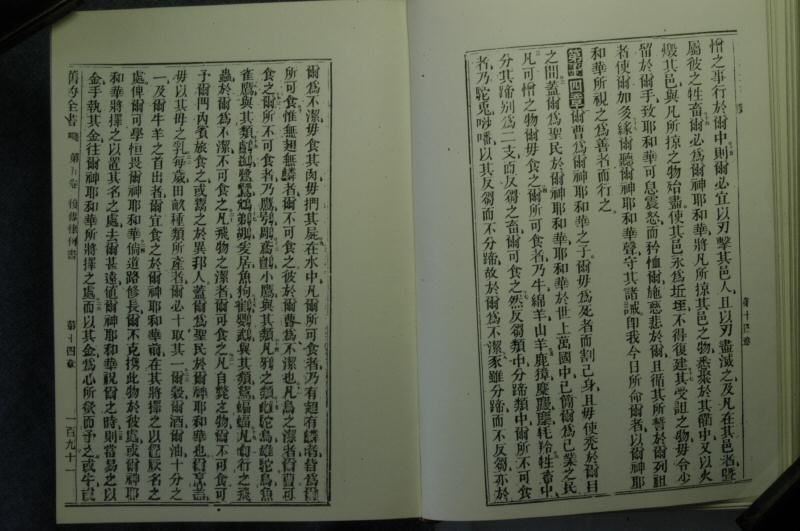 第十四章
憎之事行於爾中則爾必宜以刃擊其邑人且以刃盡滅之及凡在其邑者暨
屬彼之牲畜爾必爲爾神耶和華將凡所掠其邑之物悉聚於其街中又以火
燬其邑與凡所掠之物始盡使其邑永爲坵垤不得復建其受詛之物毋令少
留於爾手致耶和華可息震怒而矜恤爾施慈悲於爾且循其所誓於爾列祖
者使爾加多緣爾聽爾神耶和華聲守其諸誡卽我今日所命爾者以爾神耶
和華所視之爲善者而行之
第十四章爾曹爲爾神耶和華之子爾毋爲死者而割己身且毋使禿於爾目
之間蓋爾爲聖民於爾神耶和華耶和華於世上萬國中已簡爾爲己業之民
凡可憎之物爾毋食之爾所可食者乃牛綿羊山羊鹿獐
分其蹄別爲二支而反芻之畜爾可食之然反芻類中分蹄類中爾所不可食
者乃駝兎以其反芻而不分蹄故於爾爲不潔豕雖分蹄而不反芻亦於
爾爲不潔毋食其肉毋捫其屍在水中凡爾所可食者乃有翅有鱗者皆爲爾
所可食惟無翅無鱗者爾不可食之彼於爾曹爲不潔也凡鳥之潔者爾曹可
食之爾所不可食者乃鷹小鷹與其類凡鴉之類駝鳥魚
雀鷹與其類居魚狗鸛鸚鵡與其類蝙蝠凡匍行之飛
蟲於爾爲不潔不可食之凡飛物之潔者爾可食之凡自斃之物爾不可食可
予爾門內賓旅食之或鬻之於異邦人蓋爾爲聖民於爾神耶和華也
毋以其母之乳每歲田畝種類所產者爾必十取其一爾穀爾酒爾油十分之
一及爾牛羊之首出者爾宜食之於爾神耶和華前在其將擇之以置厥名之
處俾爾可學恒畏爾神耶和華倘道路修長爾不克攜此物於彼處或爾神耶
和華將擇之以置其名之處去爾甚遠値爾神耶和華祝爾之時則當易之以
金手執其金往爾神耶和華所將擇之處而以其金爲心所欲而予之或牛或
舊約全書 第五卷 復傳律例書 第十四章 一百九十一